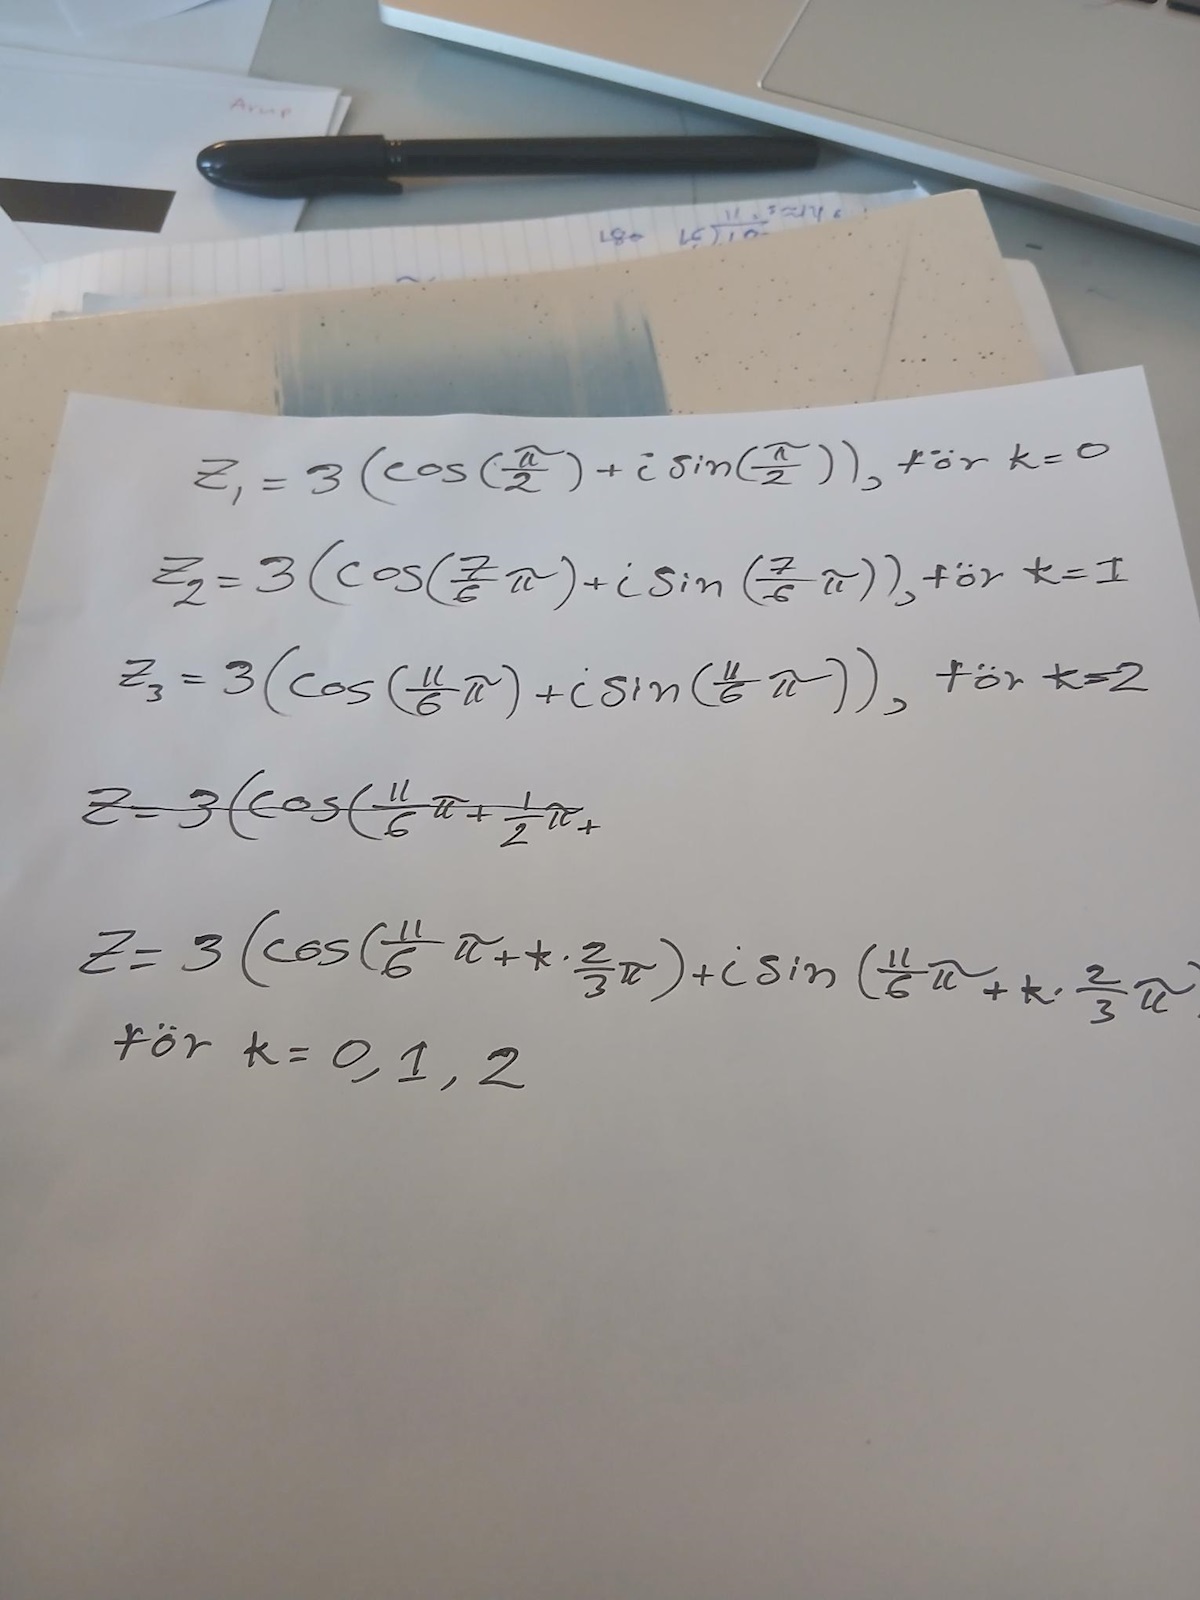 Arup
z₁ = 3(cos(π/2) + i sin(π/2)), för k = 0
z₂ = 3(cos(7/6 π) + i sin(7/6 π)), för k = 1
z₃ = 3(cos(11/6 π) + i sin(11/6 π)), för k = 2
z = 3(cos(11/6 π + 1/2 π +
z = 3(cos(11/6 π + k · 2/3 π) + i sin(11/6 π + k · 2/3 π)
för k = 0, 1, 2